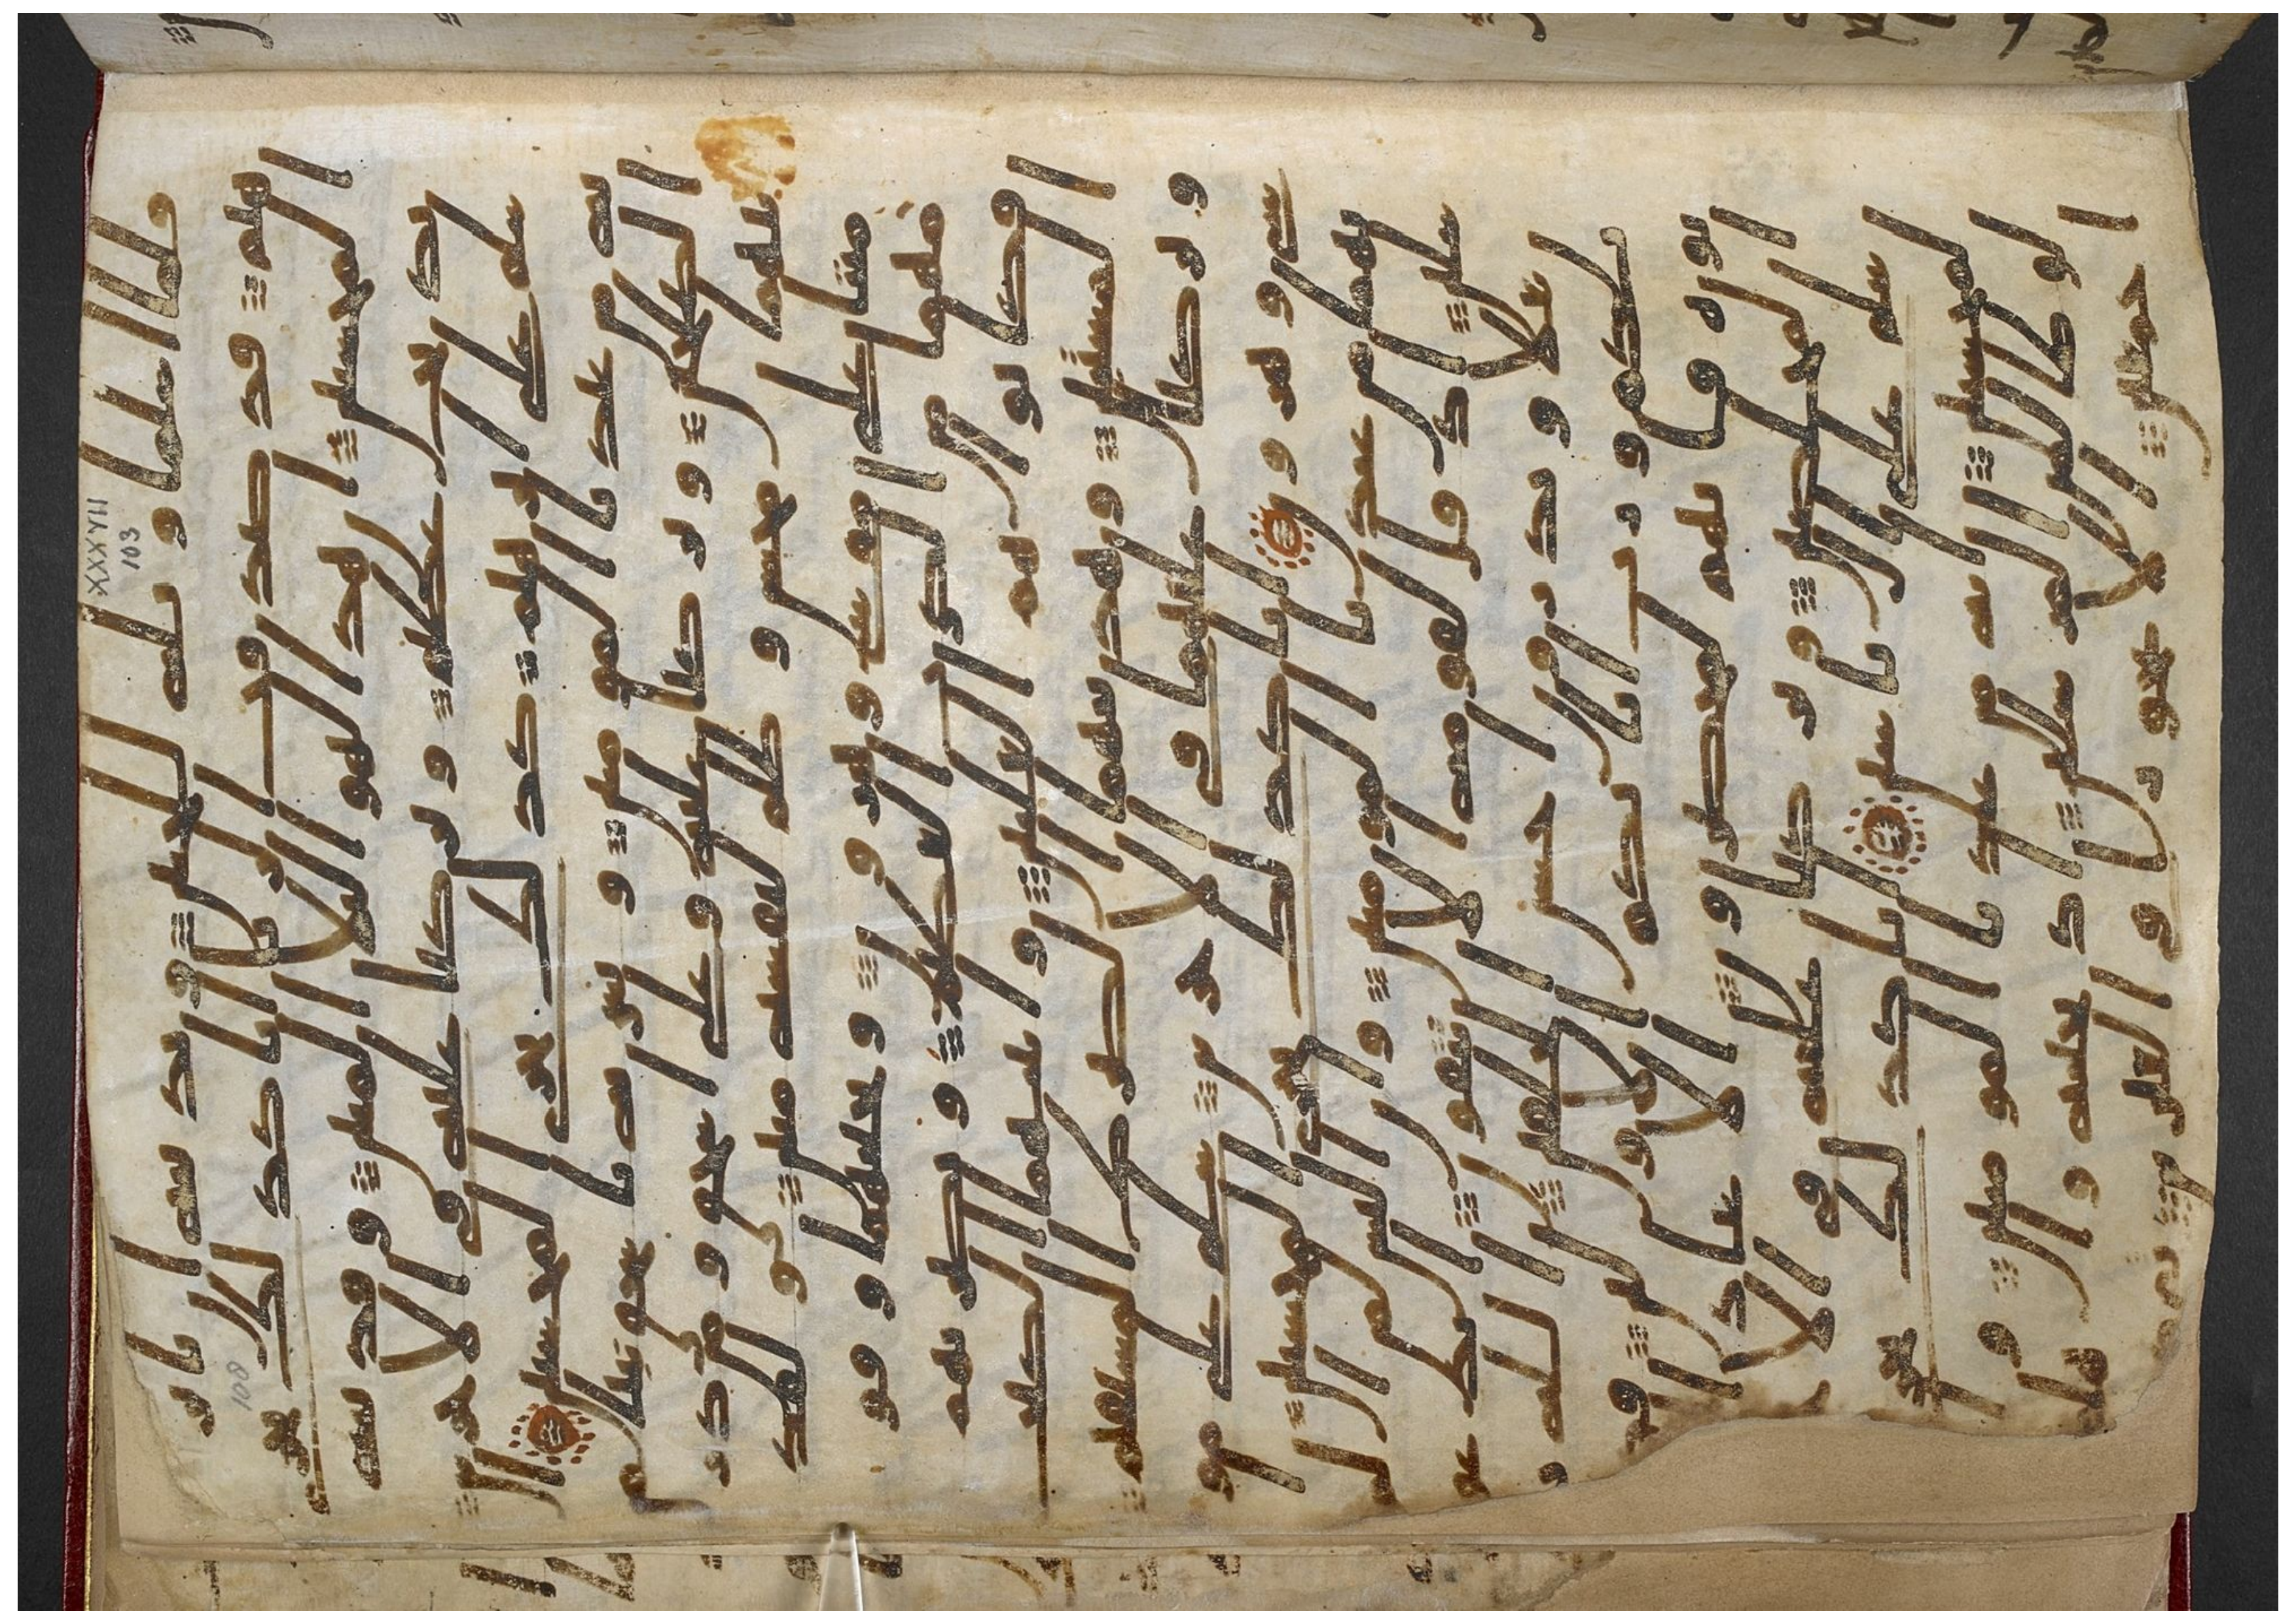 فلما اسلما وتله للجبين وندينه ان يابر
هيم قد صدقت الريا انا كذلك نجزي
المحسنين ان هذا لهو البلوا المبين وفدينه
بذبح عظيم وتركنا عليه في الاخرين
سلم على ابرهيم كذلك نجزي المحسنين
انه من عبادنا المومنين وبشرنه باسحق نبيا من
الصلحين وبركنا عليه وعلى اسحق ومن ذر
يتهما محسن وظلم لنفسه مبين ولقد
مننا على موسى وهرون ونجينهما وقو
مهما من الكرب العظيم ونصرنهم
فكانوا هم الغلبين واتينهما الكتب
المستبين وهدينهما الصرط المستقيم
وتركنا عليهما في الاخرين سلم على مو
سى وهرون انا كذلك نجزي المحسنين ا
نهما من عبادنا المومنين وان الياس لمن المر
سلين اذ قال لقومه الا تتقون اتدعون
بعلا وتذرون احسن الخلقين الله ر
بكم ورب ابائكم الاولين فكذ
بوه فانهم لمحضرون الا عباد ا
لله المخلصين وتركنا عليه في الاخر
ين سلم على ال ياسين انا كذلك نجزي ا
لمحسنين انه من عبادنا المومنين وا
ن لوطا لمن المرسلين اذ نجينه واهله
اجمعين الا عجوزا في الغبرين
XXXVII
103
108